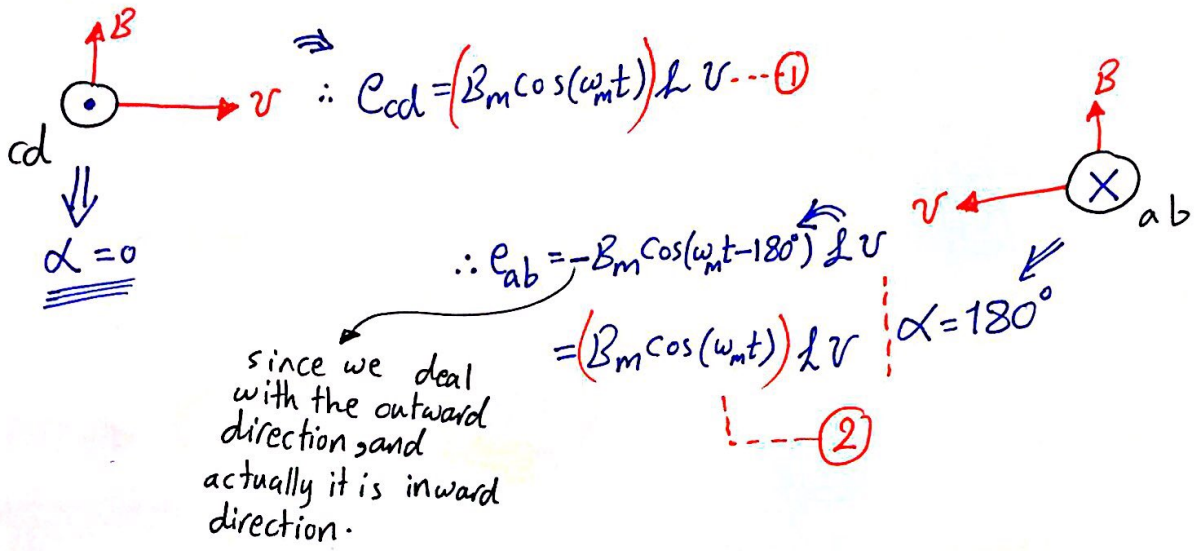 B
v
cd
α = 0
⇒
∴ e_cd = (B_m cos(ω_m t)) ℓ v ---- ①
B
v
ab
α = 180°
∴ e_ab = -B_m cos(ω_m t - 180°) ℓ v
= (B_m cos(ω_m t)) ℓ v
②
since we deal
with the outward
direction, and
actually it is inward
direction.